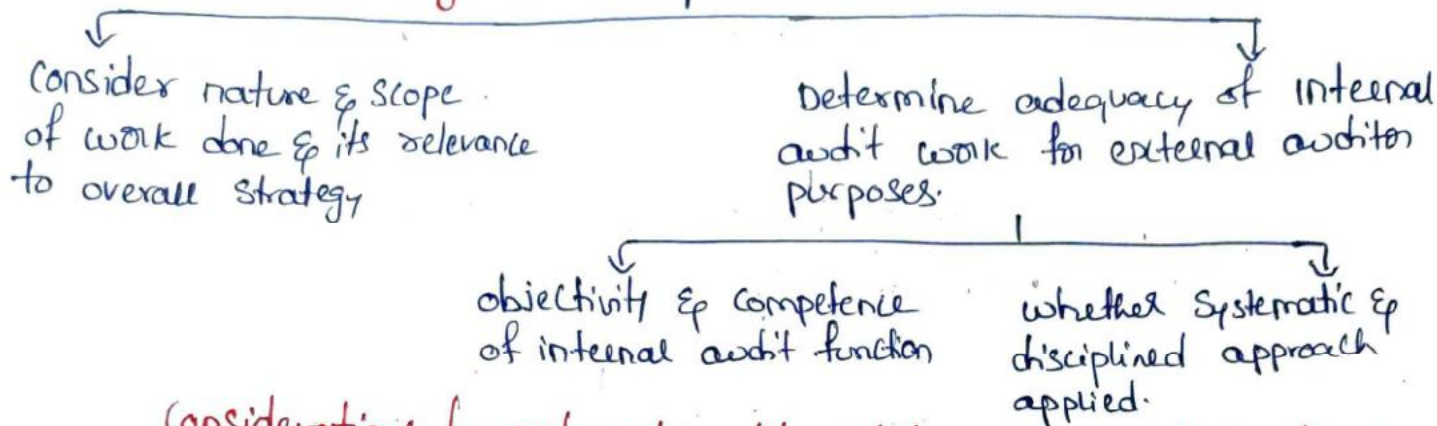 Consider nature & scope
of work done & its relevance
to overall strategy
Determine adequacy of internal
audit work for external auditor
purposes.
objectivity & competence
of internal audit function
whether systematic &
disciplined approach
applied.